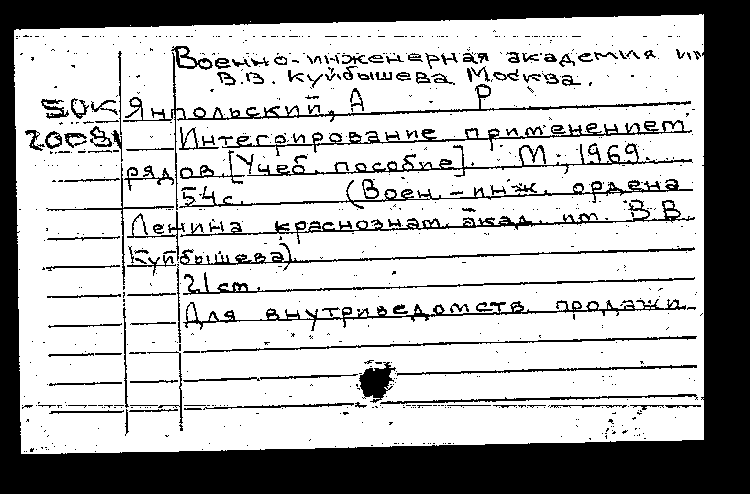 Военно-инженерная академия им
В.В. Куйбышева. Москва.
50К Янпольский, А Р
20081 Интегрирование применением
рядов. [Учеб. пособие]. М., 1969.
54с. (Воен.-инж. ордена
Ленина краснознам. акад. им. В.В.
Куйбышева).
21cm.
Для внутриведомств. продажи